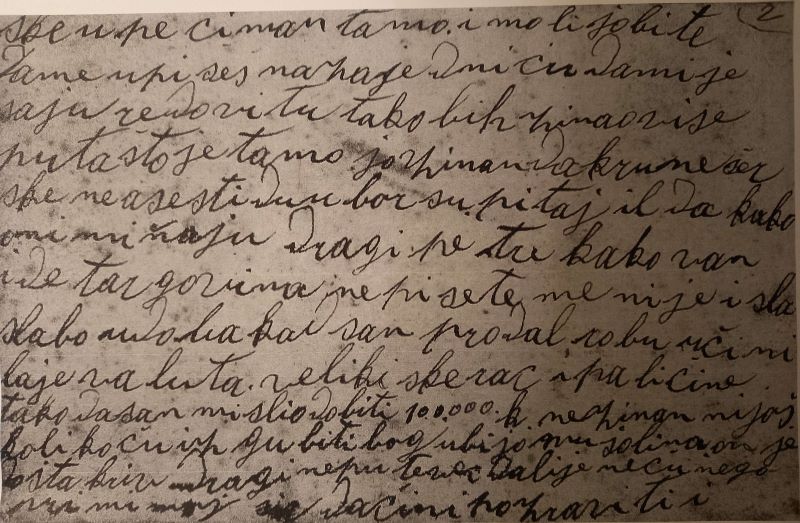 2
ske u pe ciman tamo. i moli jobite
dame upi ses na haje dni cu dami je
saju redovi tu tako bih hinao vise
puta što je tamo jo hinan dakrune šer
ske ne a se sti du u bor su pitaj il da kako
oni mi ñaju dragi pe tre kako van
ide tar govina ne pi sete me ni je i sla
slabo u do ba kad san prodal robu uči ni
la je va luta. veliki skerac i paličine
tako da san mi slio dobiti 100.000. k. ne hinan ni još
koliko ću ih gu biti bog ubi jo on je
dosta kriv dragi ne pu te vec dali je neću nego
da čini po praviti i